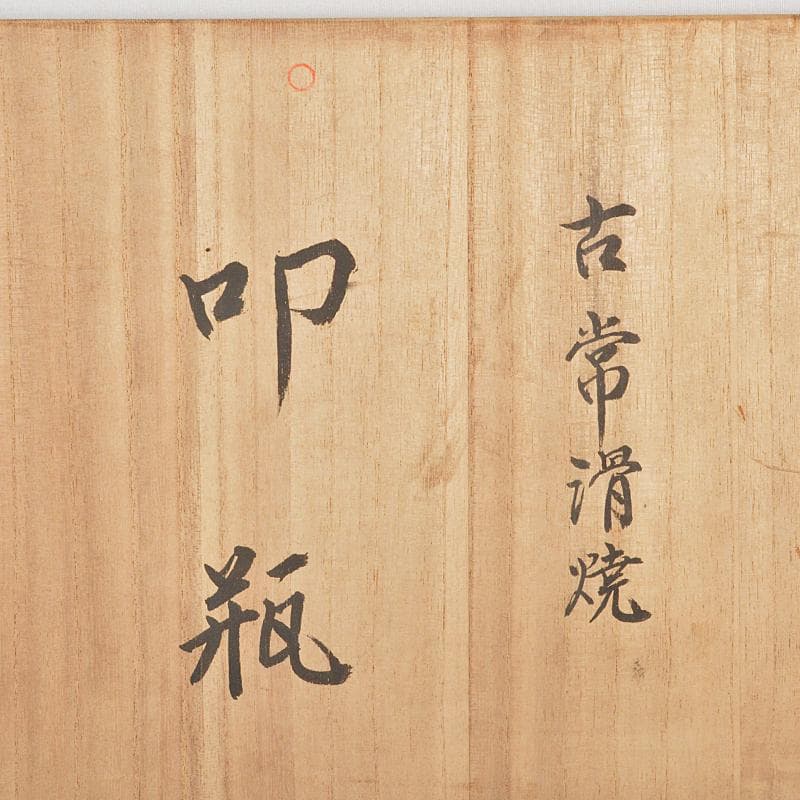 古常滑燒
叩瓶